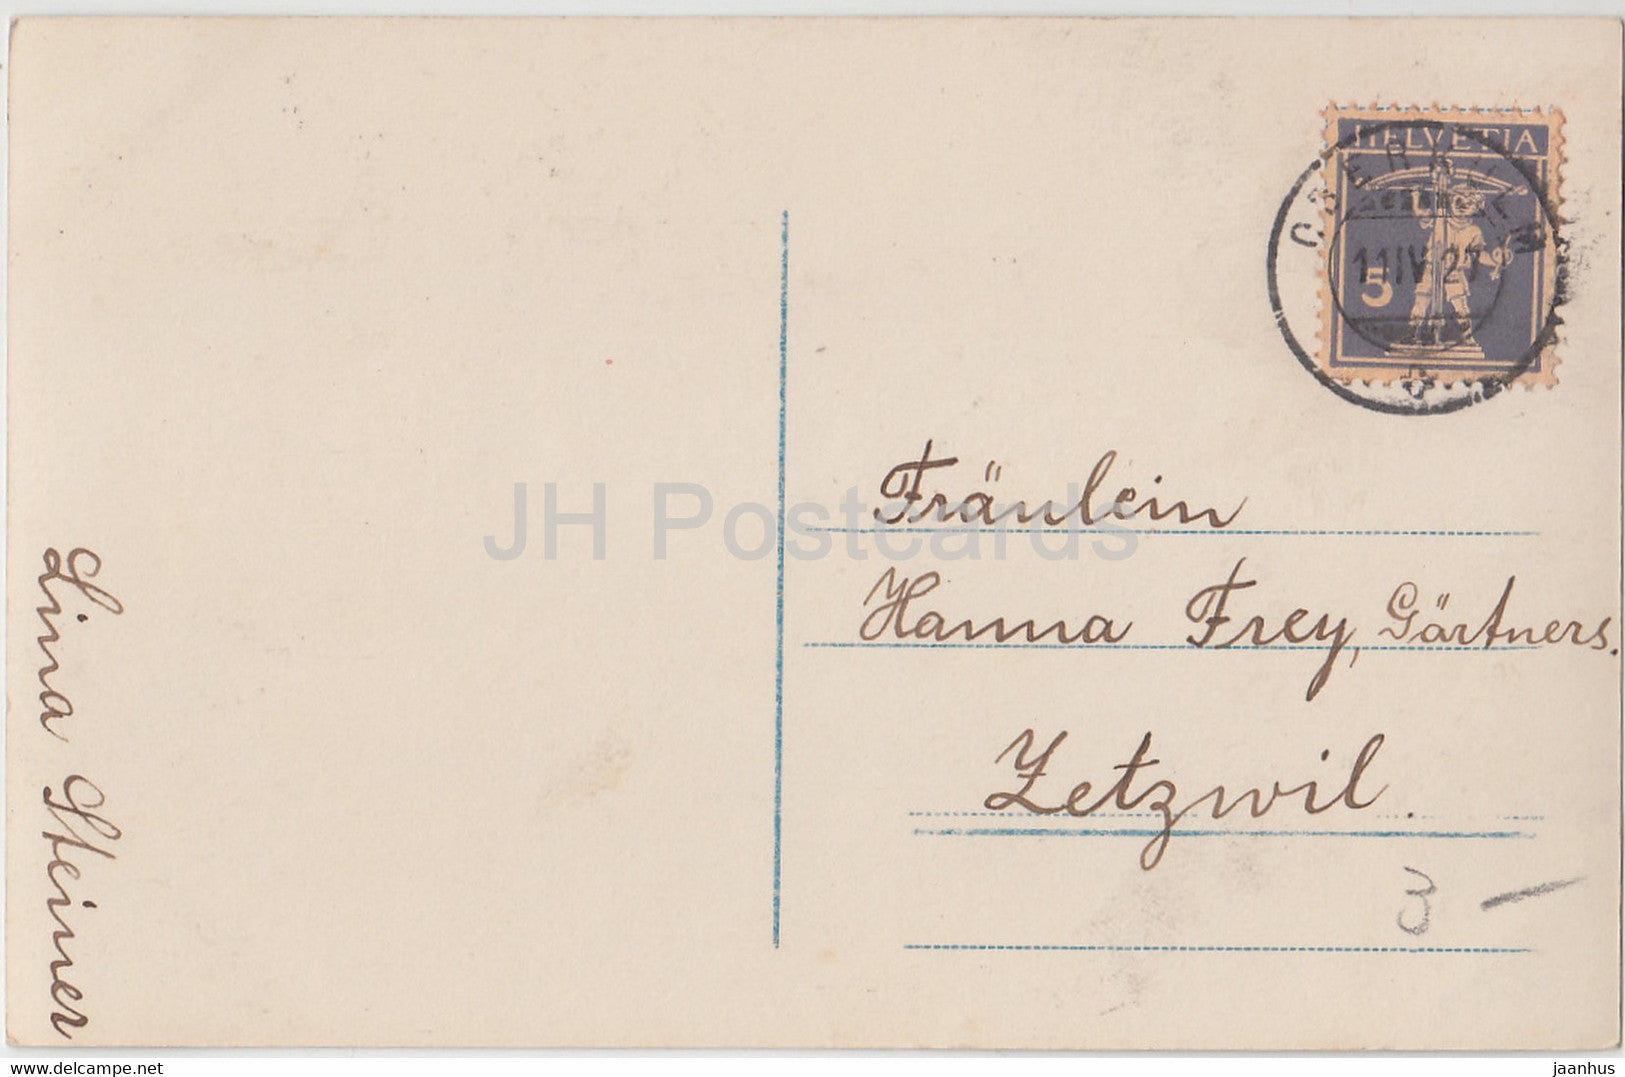 HELVETIA
OBERKULM
11 IV 27
5
Fräulein
Hanna Frey, Gärtners.
Zetzwil.
3 –
Lina Steiner
JH Postcards
www.delcampe.net
jaanhus